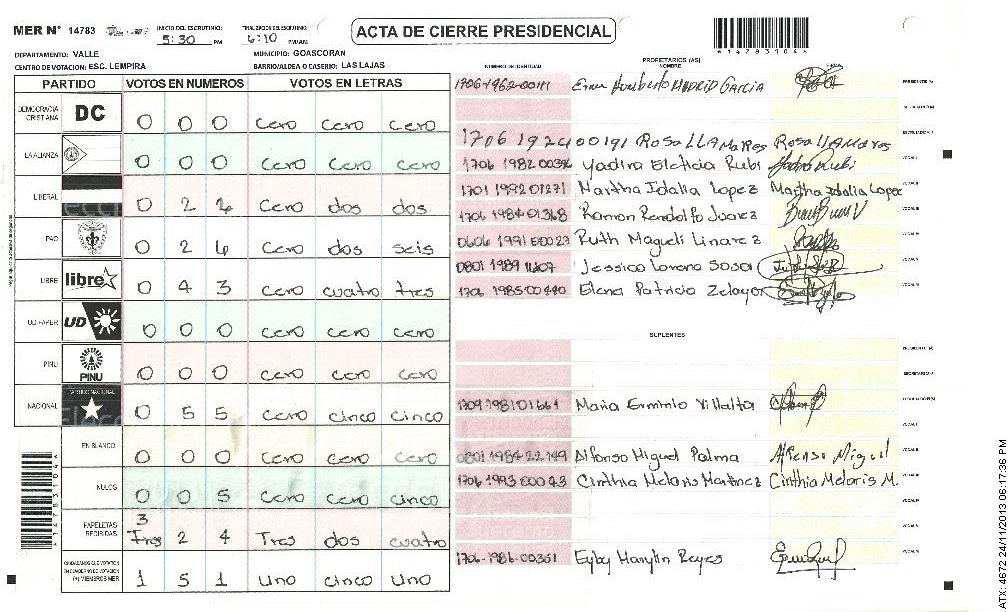 MER N° 14783 INICIO DEL ESCRUTINIO: 5:30 PM FINALIZACION DEL ESCRUTINIO: 6:10 PM/AM ACTA DE CIERRE PRESIDENCIAL
DEPARTAMENTO: VALLE MUNICIPIO: GOASCORAN
CENTRO DE VOTACION: ESC. LEMPIRA BARRIO/ALDEA O CASERIO: LAS LAJAS
PARTIDO VOTOS EN NUMEROS VOTOS EN LETRAS
DEMOCRACIA CRISTIANA DC 0 0 0 cero cero cero
LA ALIANZA 0 0 0 cero cero cero
LIBERAL 0 2 2 cero dos dos
PAC 0 2 6 cero dos seis
LIBRE libre 0 4 3 cero cuatro tres
UD-FAPER UD 0 0 0 cero cero cero
PINU PINU 0 0 0 cero cero cero
NACIONAL PARTIDO NACIONAL 0 5 5 cero cinco cinco
EN BLANCO 0 0 0 cero cero cero
NULOS 0 0 5 cero cero cinco
PAPELETAS RECIBIDAS 3 Tres 2 4 Tres dos cuatro
CIUDADANOS QUE VOTARON EN CUADERNO DE VOTACION (+) MIEMBROS MER 1 5 1 uno cinco uno
NUMERO DE IDENTIDAD PROPIETARIOS (AS) NOMBRE FIRMA
Humberto MADRID GARCIA PRESIDENTE (A)
Rosa LLAMARES Rosa LLAMARES
1706 1982 Yadira Eleticia Rubi
1701 1992 01271 Martha Idalia Lopez Martha Idalia Lopez
1706 1984 01368 Ramon Rendolfo Juarez
Ruth Magueli Linarez
Jessica Lorena Sosa
1706 1985 00440 Elena Patricia Zelaya
SUPLENTES
Maria Erminio Villalta
0801 1984 22149 Alfonso Miguel Palma Alfonso Miguel
1706 1993 00043 Cinthia Meloris Martinez Cinthia Meloris M.
1706-1986-00351 Eyby Marylin Reyes
ATX: 4672 24/11/2013 06:17:36 PM